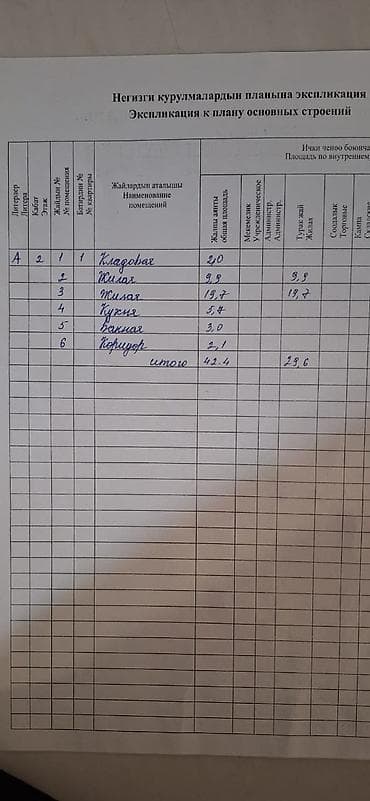 Негизги курулмалардын планына экспликация
Экспликация к плану основных строений
Ички ченөө боюнча
Площадь по внутренним
Литерлер
Литера
Кабат
Этаж
Жайдын №
№ помещения
Батирдин №
№ квартиры
Жайлардын аталышы
Наименование
помещений
Жалпы аянты
общая площадь
Мекемелик
Учрежденическое
Администр.
Администр.
Турак жай
Жилая
Соодалык
Торговые
Кампа
А 2 1 1 Кладовая 2,0
2 Жилая 9,9 9,9
3 Жилая 19,7 19,7
4 Кухня 5,7
5 Ванная 3,0
6 Коридор 2,1
итого 42.4 29,6